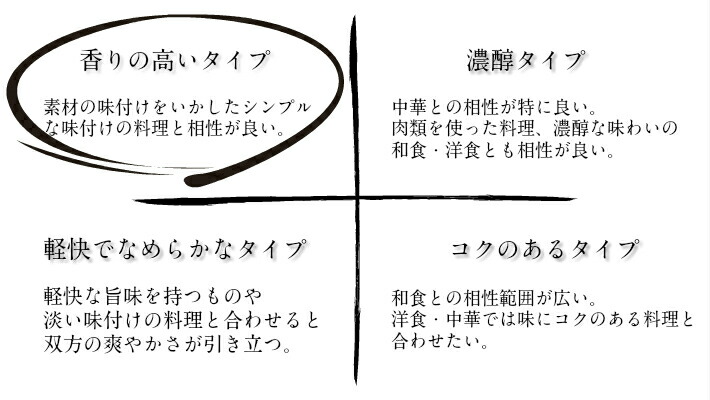 香りの高いタイプ
素材の味付けをいかしたシンプル
な味付けの料理と相性が良い。
濃醇タイプ
中華との相性が特に良い。
肉類を使った料理、濃醇な味わいの
和食・洋食とも相性が良い。
軽快でなめらかなタイプ
軽快な旨味を持つものや
淡い味付けの料理と合わせると
双方の爽やかさが引き立つ。
コクのあるタイプ
和食との相性範囲が広い。
洋食・中華では味にコクのある料理と
合わせたい。